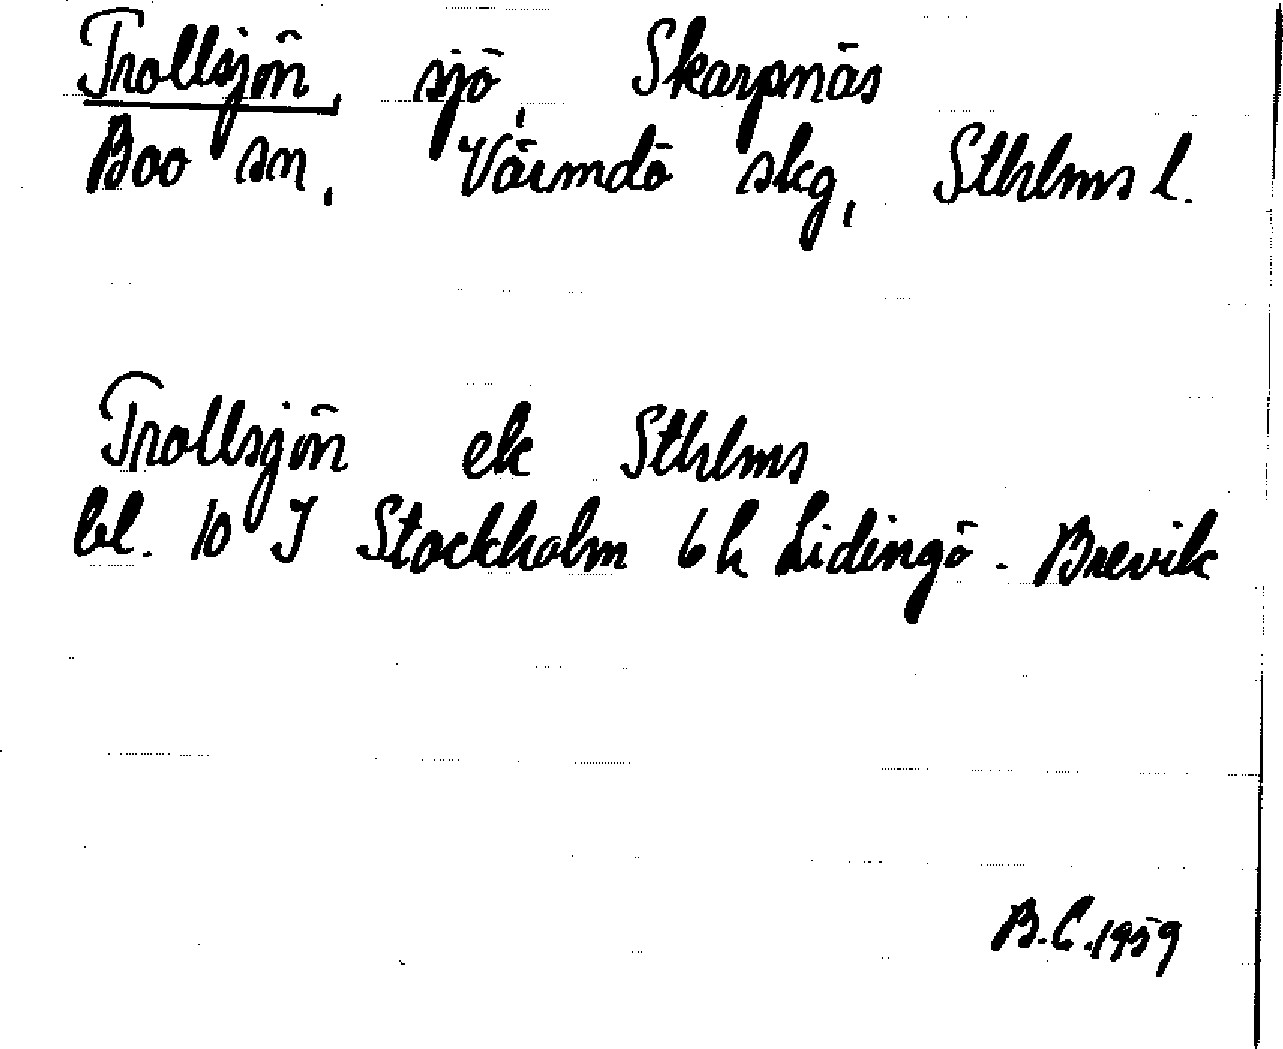 Trollsjön, sjö, Skarpnäs
Boo sn, Värmdö skg, Sthlms l.
Trollsjön ek Sthlms
bl. 10 I Stockholm 6 h Lidingö - Brevik
B.C. 1959